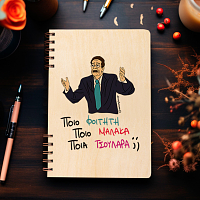 Ποιο ΦΟΙΤΗΤΗ
Ποιο ΜΑΛΑΚΑ
Ποια ΤΣΟΥΛΑΡΑ ;;